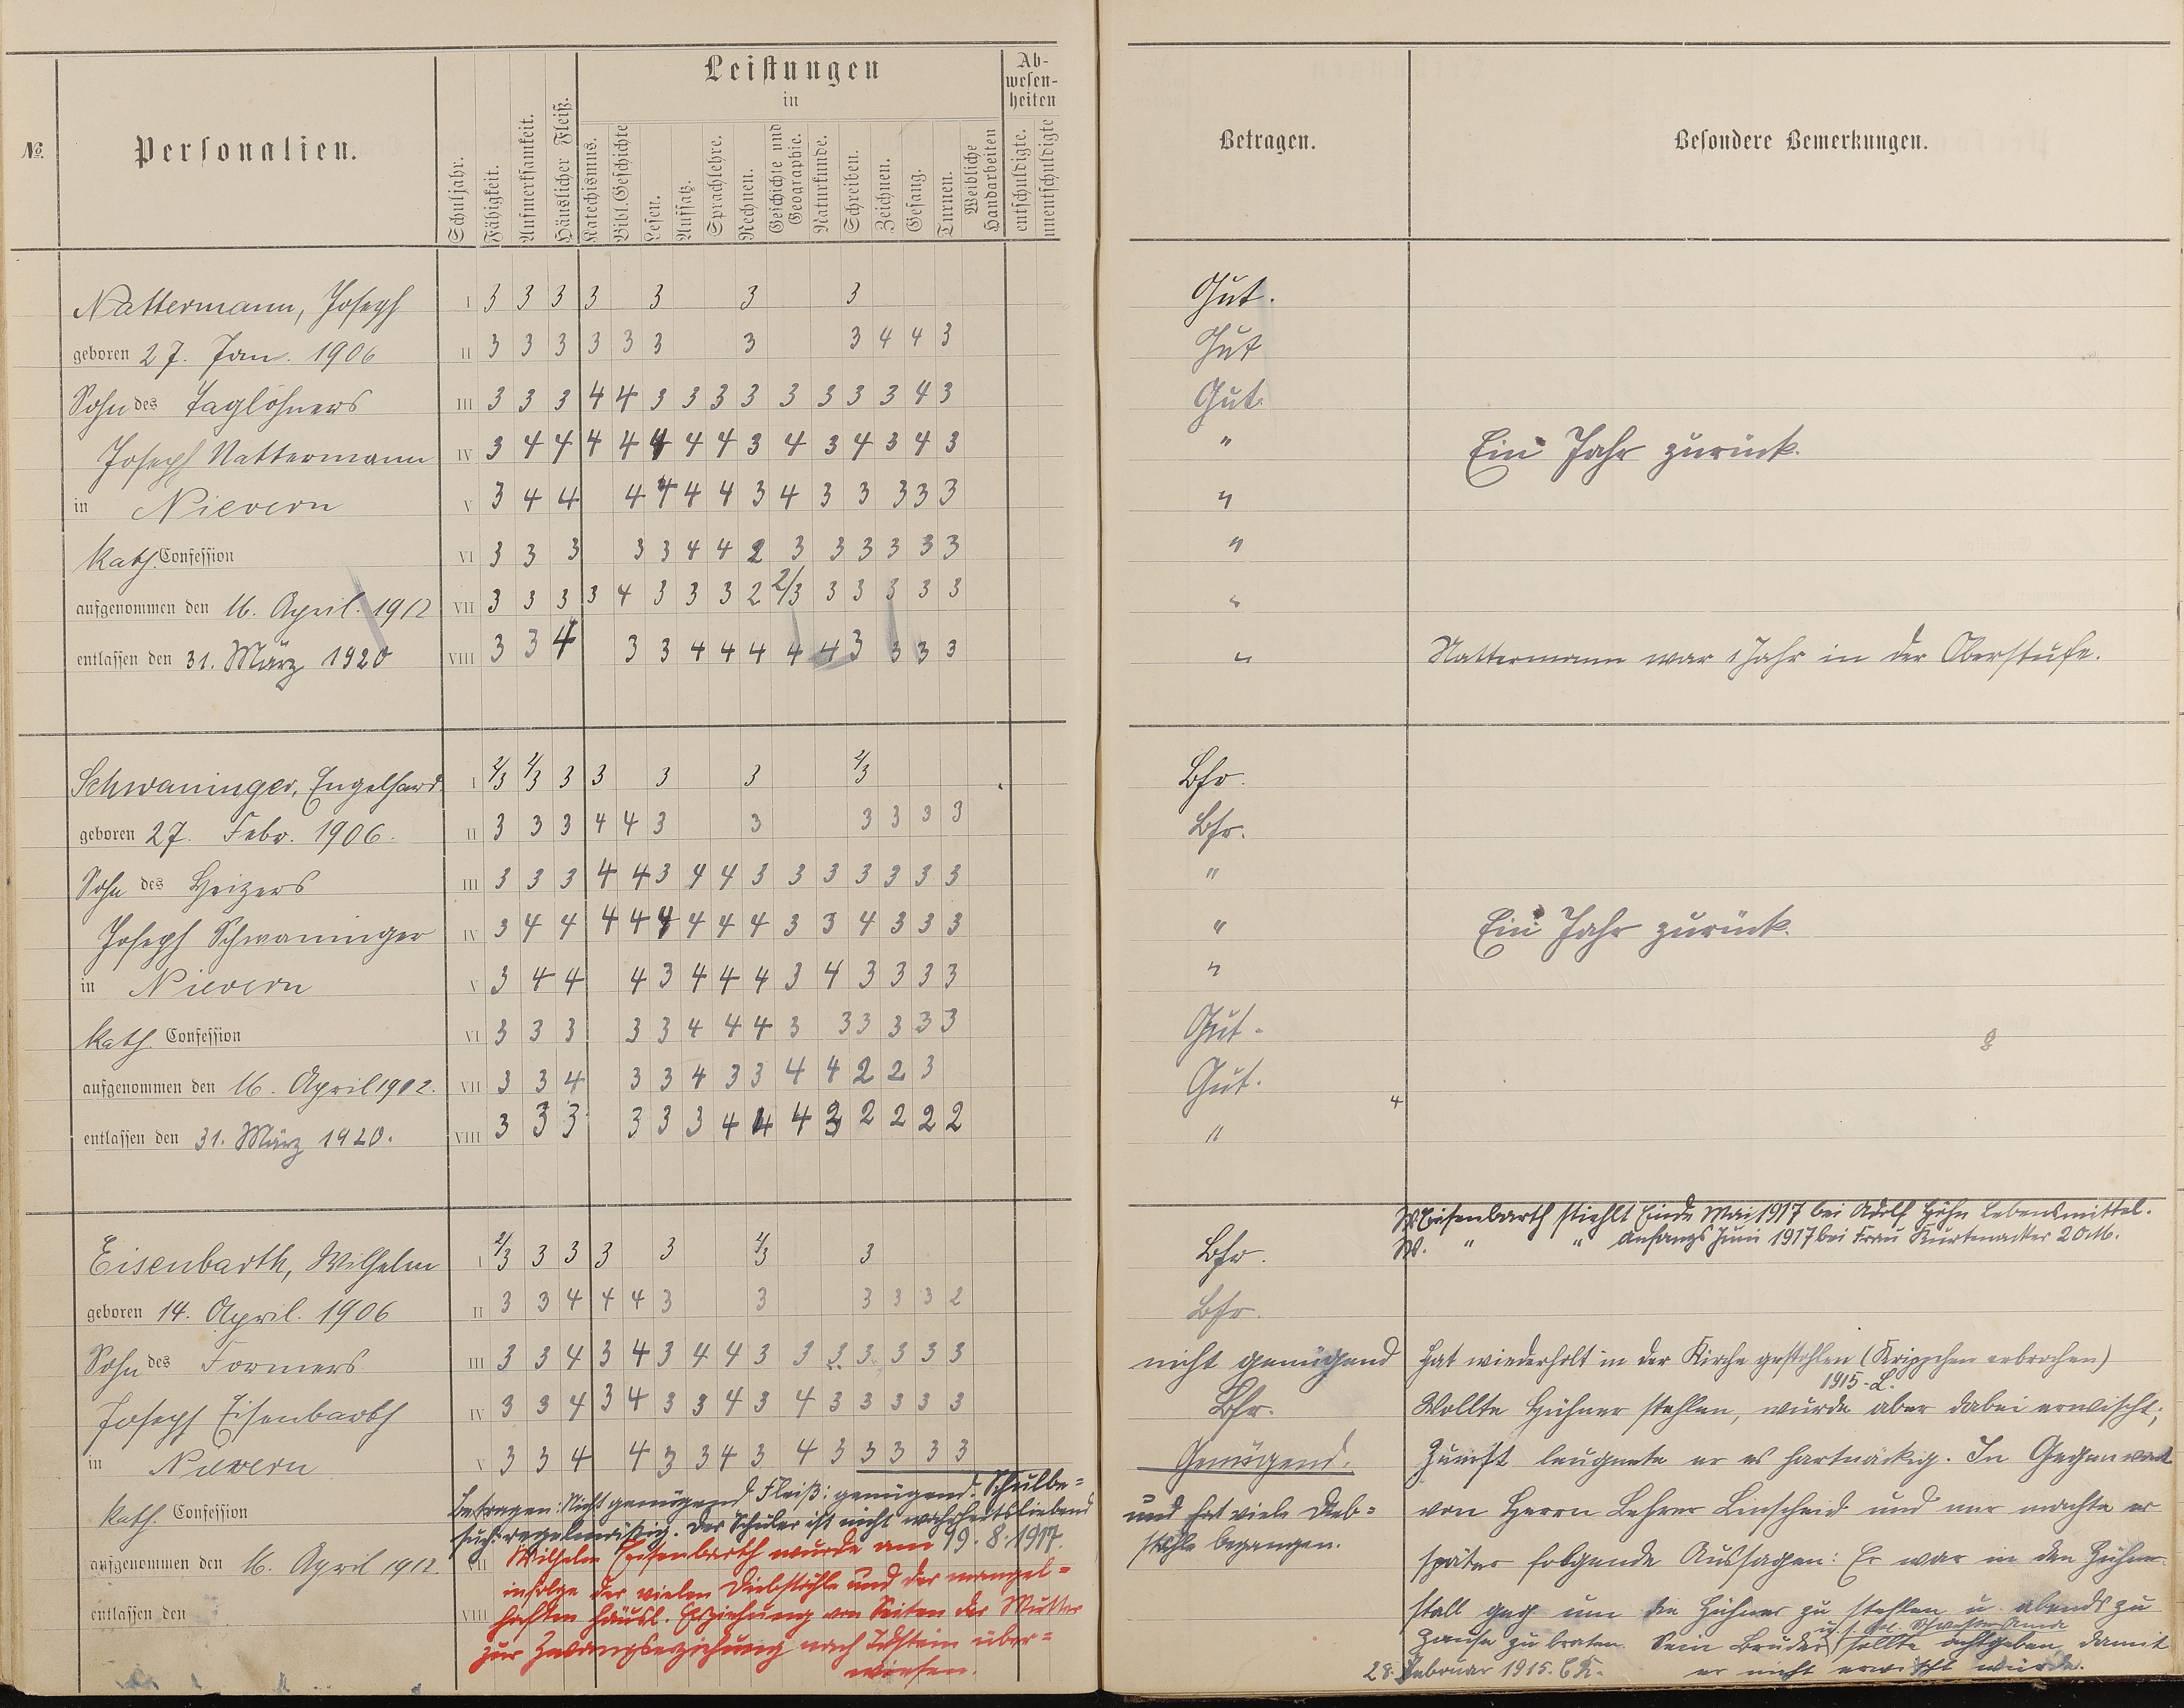 No.
Personalien.
Schuljahr.
Fähigkeit.
Aufmerksamkeit.
Häuslicher Fleiß.
Leistungen
in
Katechismus.
Bibl. Geschichte
Lesen.
Aufsatz.
Sprachlehre.
Rechnen.
Geschichte und Geographie.
Naturkunde.
Schreiben.
Zeichnen.
Gesang.
Turnen.
Weibliche Handarbeiten
Ab-
wesen-
heiten
entschuldigte.
unentschuldigte
Betragen.
Besondere Bemerkungen.
Nattermann, Joseph I 3 3 3 3 3 3 3 Gut.
geboren 27. Jan. 1906 II 3 3 3 3 3 3 3 3 4 4 3 Gut
Sohn des Taglöhners III 3 3 3 4 4 3 3 3 3 3 3 3 3 4 3 Gut.
Joseph Nattermann IV 3 4 4 4 4 4 4 4 3 4 3 4 3 4 3 " Ein Jahr zurück.
in Nievern V 3 4 4 4 4 4 4 3 4 3 3 3 3 3 "
kath. Confession VI 3 3 3 3 3 4 4 2 3 3 3 3 3 3 "
aufgenommen den 16. April. 1912 VII 3 3 3 3 4 3 3 3 2 2/3 3 3 3 3 3 "
entlassen den 31. März 1920 VIII 3 3 4 3 3 4 4 4 4 4 3 3 3 3 " Nattermann war 1 Jahr in der Oberstufe.
Schwaninger, Engelhard I 2/3 2/3 3 3 3 3 2/3 Bfr.
geboren 27. Febr. 1906. II 3 3 3 4 4 3 3 3 3 3 3 Bfr.
Sohn des Heizers III 3 3 3 4 4 3 4 4 3 3 3 3 3 3 3 "
Joseph Schwaninger IV 3 4 4 4 4 4 4 4 4 3 3 4 3 3 3 " Ein Jahr zurück.
in Nievern V 3 4 4 4 3 4 4 4 3 4 3 3 3 3 "
kath. Confession VI 3 3 3 3 3 4 4 4 3 3 3 3 3 3 Gut.
aufgenommen den 16. April 1912. VII 3 3 4 3 3 4 3 3 4 4 2 2 3 Gut.
4
entlassen den 31. März 1920. VIII 3 3 3 3 3 3 4 4 4 3 2 2 2 2 "
W. Eisenbarth stiehlt Ende Mai 1917 bei Adolf Höhn Lebensmittel.
W. " " Anfangs Juni 1917 bei Frau Kurtenacker 20 M.
Eisenbarth, Wilhelm I 2/3 3 3 3 3 2/3 3 Bfr.
geboren 14. April. 1906 II 3 3 4 4 4 3 3 3 3 3 2 Bfr.
Sohn des Formers III 3 3 4 3 4 3 4 4 3 3 3 3 3 3 3 nicht genügend Hat wiederholt in der Kirche gestohlen (Krippchen erbrochen)
1915 - L.
Joseph Eisenbarth IV 3 3 4 3 4 3 3 4 3 4 3 3 3 3 3 Bfr. Wollte Hühner stehlen, wurde aber dabei erwischt;
in Nievern V 3 3 4 4 3 3 4 3 4 3 3 3 3 3 Genügend. Zuerst leugnete er es hartnäckig. In Gegenwart
kath. Confession Betragen: Nicht genügend Fleiß: genügend. Schulbe-
such: regelmäßig. Der Schüler ist nicht wahrheitsliebend
und hat viele Dieb-
stähle begangen.
von Herrn Lehrer Linscheid und mir machte er
aufgenommen den 16. April 1912. VII Wilhelm Eisenbarth wurde am 19. 8. 1917.
infolge der vielen Diebstähle und der mangel-
entlassen den VIII haften häusl. Erziehung von Seiten der Mutter
zur Zwangserziehung nach Idstein über-
wiesen.
später folgende Aussagen: Er war in den Hühner-
stall geg um die Hühner zu stehlen u. abends zu
Hause zu braten. Sein Bruder sollte achtgeben, damit
u. s. Schwester Anna
28. Februar 1915. er nicht erwischt würde.